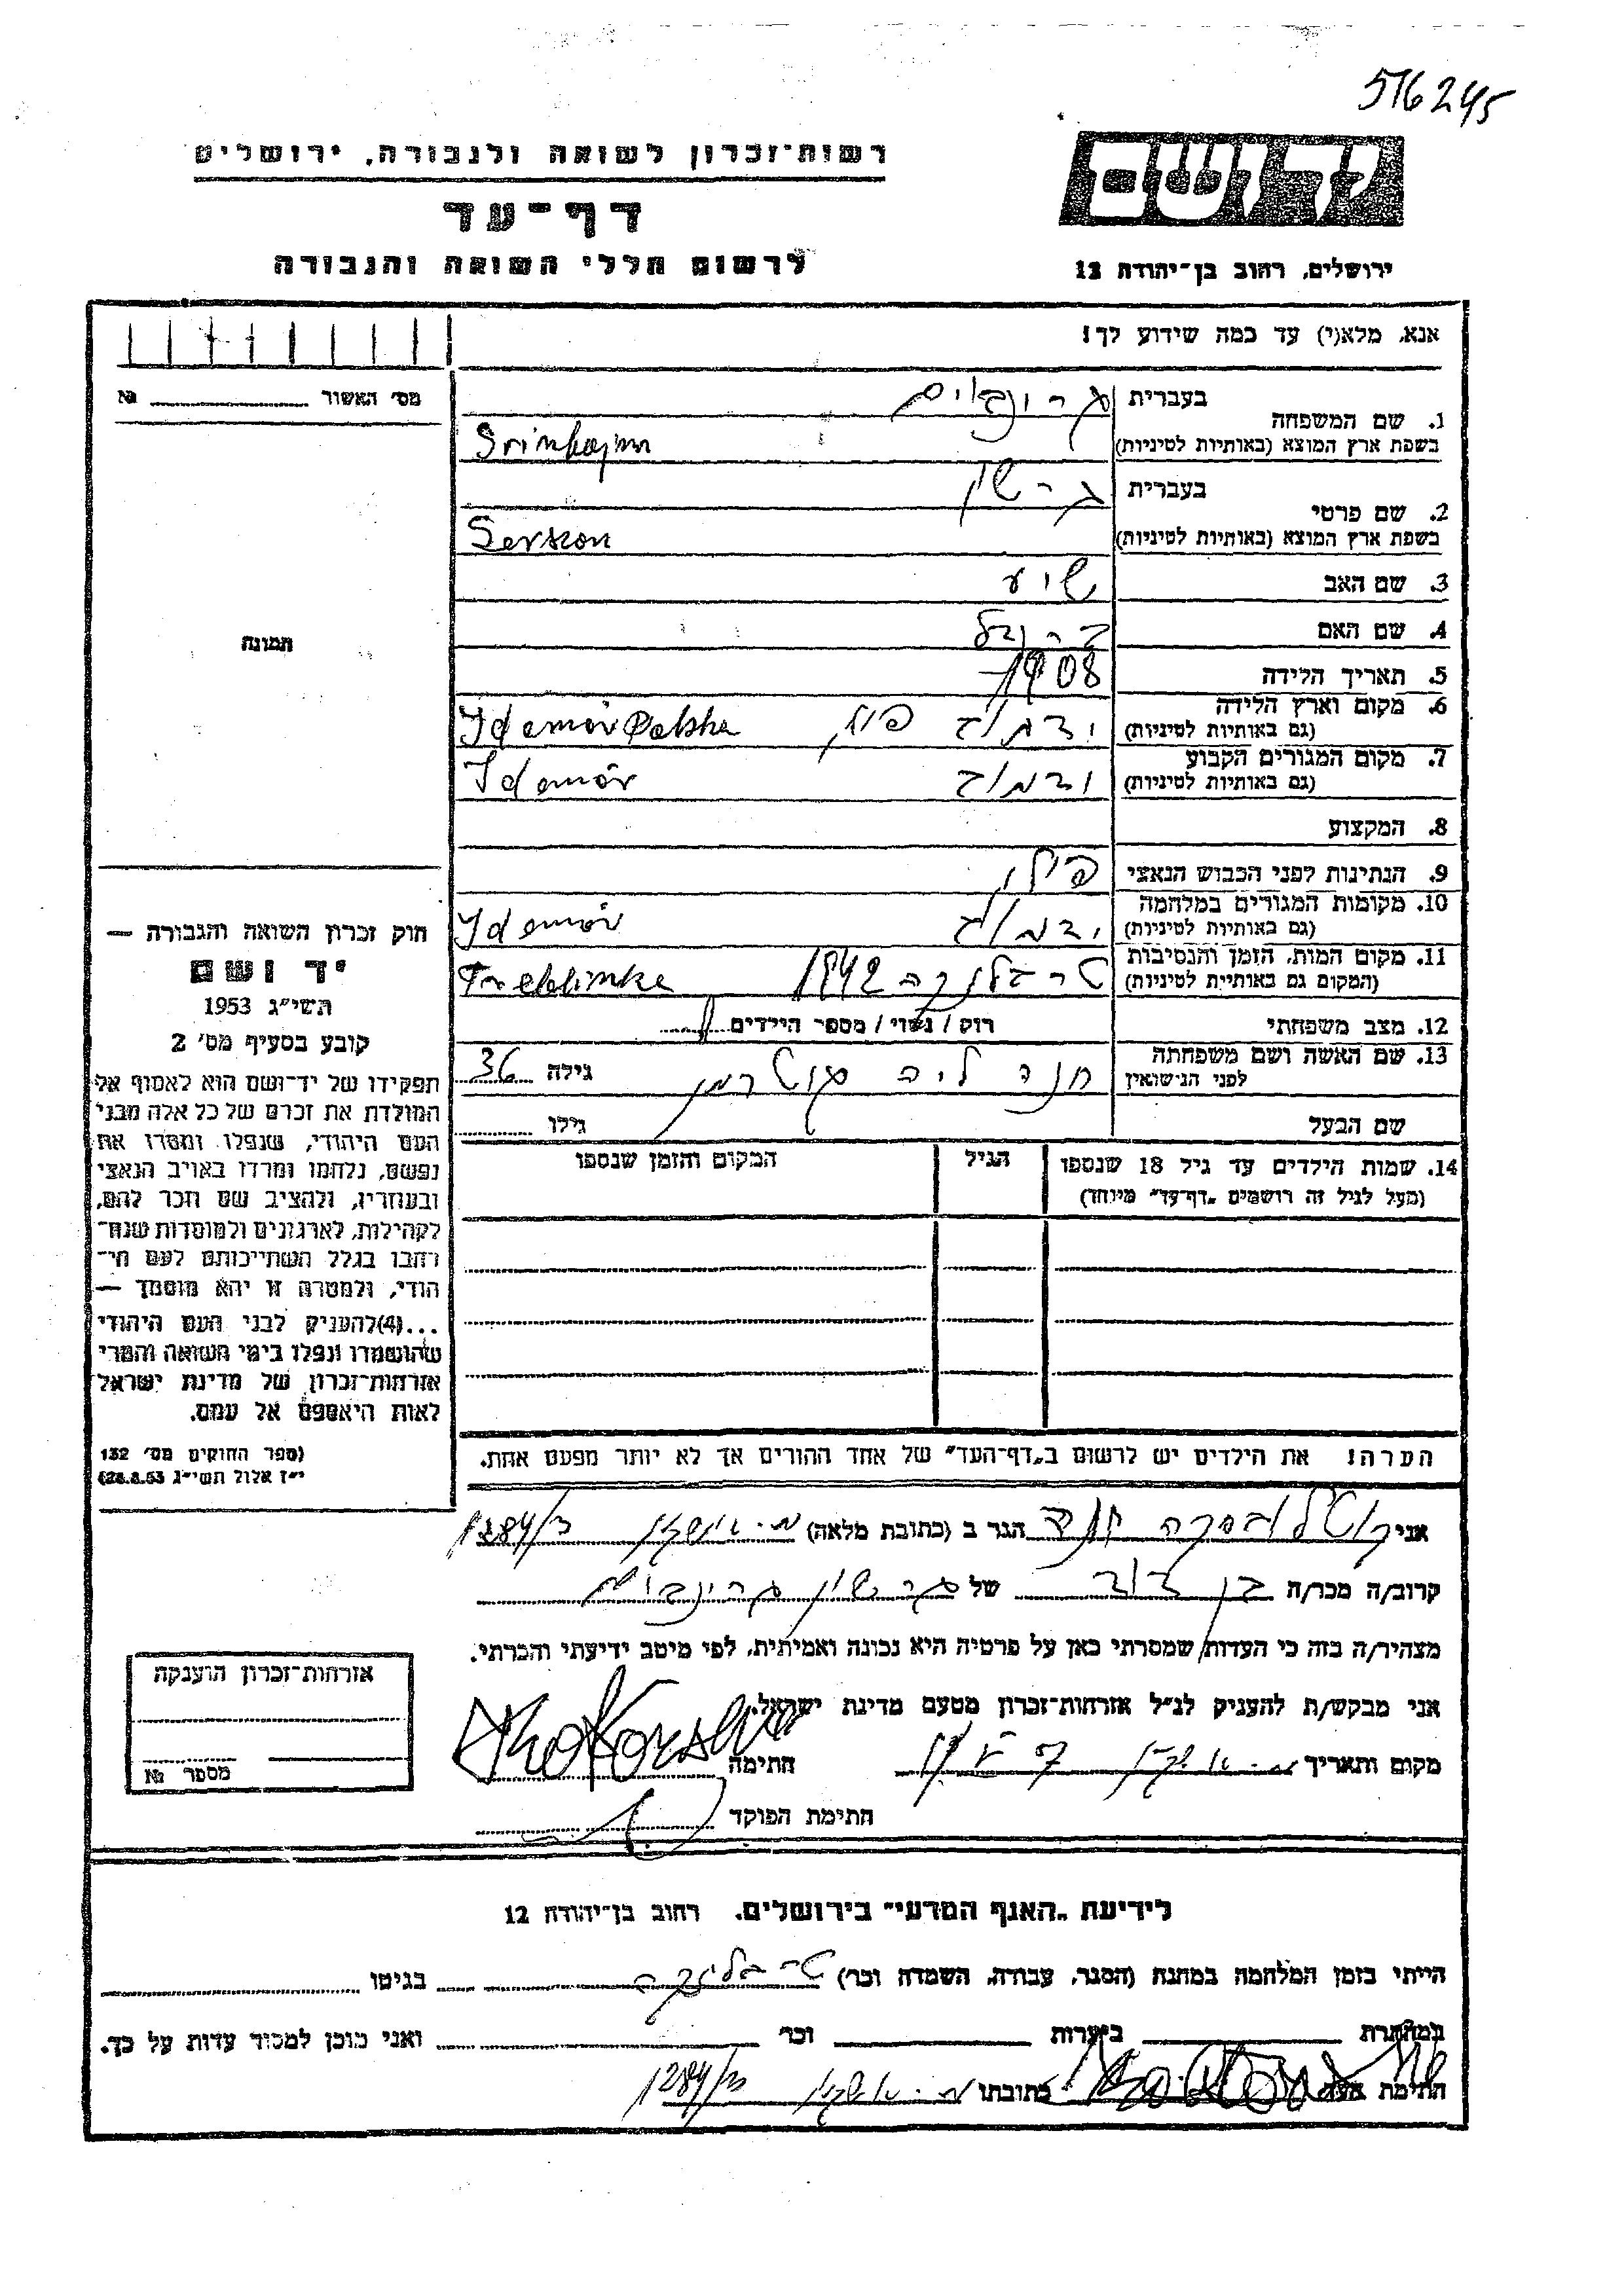 516245
רשות־זכרון לשואה ולגבורה, ירושלים
דף־עד
לרשום חללי השואה והגבורה
יד ושם
ירושלים, רחוב בן־יהודה 12
אנא, מלא(י) עד כמה שידוע לך!
מס׳ האשור №
1. שם המשפחה
בעברית גרינבוים
בשפת ארץ המוצא (באותיות לטיניות) Grinbajm
2. שם פרטי
בעברית גרשון
בשפת ארץ המוצא (באותיות לטיניות) Gerszon
3. שם האב
4. שם האם
5. תאריך הלידה 1908
6. מקום וארץ הלידה
(גם באותיות לטיניות) פולין Polska
7. מקום המגורים הקבוע
(גם באותיות לטיניות)
8. המקצוע
9. הנתינות לפני הכבוש הנאצי פולין
10. מקומות המגורים במלחמה
(גם באותיות לטיניות)
11. מקום המות, הזמן והנסיבות
(המקום גם באותיות לטיניות) טרבלנקה 1942 Treblinka
12. מצב משפחתי רווק / נשוי / מספר הילדים
13. שם האשה ושם משפחתה
לפני הנישואין חנה ליה גילה 36
שם הבעל גילו
14. שמות הילדים עד גיל 18 שנספו הגיל המקום והזמן שנספו
(מעל לגיל זה רושמים „דף־עד״ מיוחד)
הערה! את הילדים יש לרשום ב„דף־העד״ של אחד ההורים אך לא יותר מפעם אחת.
תמונה
חוק זכרון השואה והגבורה —
יד ושם
תשי״ג 1953
קובע בסעיף מס׳ 2
תפקידו של יד־ושם הוא לאסוף אל
המולדת את זכרם של כל אלה מבני
העם היהודי, שנפלו ומסרו את
נפשם, נלחמו ומרדו באויב הנאצי
ובעוזריו, ולהציב שם וזכר להם,
לקהילות, לארגונים ולמוסדות שנח־
רבו בגלל השתייכותם לעם הי־
הודי, ולמטרה זו יהא מוסמך —
...(4)להעניק לבני העם היהודי
שהושמדו ונפלו בימי השואה והמרי
אזרחות־זכרון של מדינת ישראל
לאות היאספם אל עמם.
(ספר החוקים מס׳ 132
י״ז אלול תשי״ג 28.8.53)
אני הגר ב (כתובת מלאה) 1284/
קרוב/ה מכר/ה בן דוד של גרשון גרינבוים
מצהיר/ה בזה כי העדות שמסרתי כאן על פרטיה היא נכונה ואמיתית, לפי מיטב ידיעתי והכרתי.
אני מבקש/ת להעניק לנ״ל אזרחות־זכרון מטעם מדינת ישראל.
מקום ותאריך חתימה
חתימת הפוקד
אזרחות־זכרון הוענקה
מספר №
לידיעת „האגף המדעי״ בירושלים, רחוב בן־יהודה 12
הייתי בזמן המלחמה במחנה (הסגר, עבודה, השמדה וכו׳) טרבלינקה בגיטו
במחתרת ביערות וכו׳ ואני מוכן למסור עדות על כך.
חתימת העד כתובתו 1284/